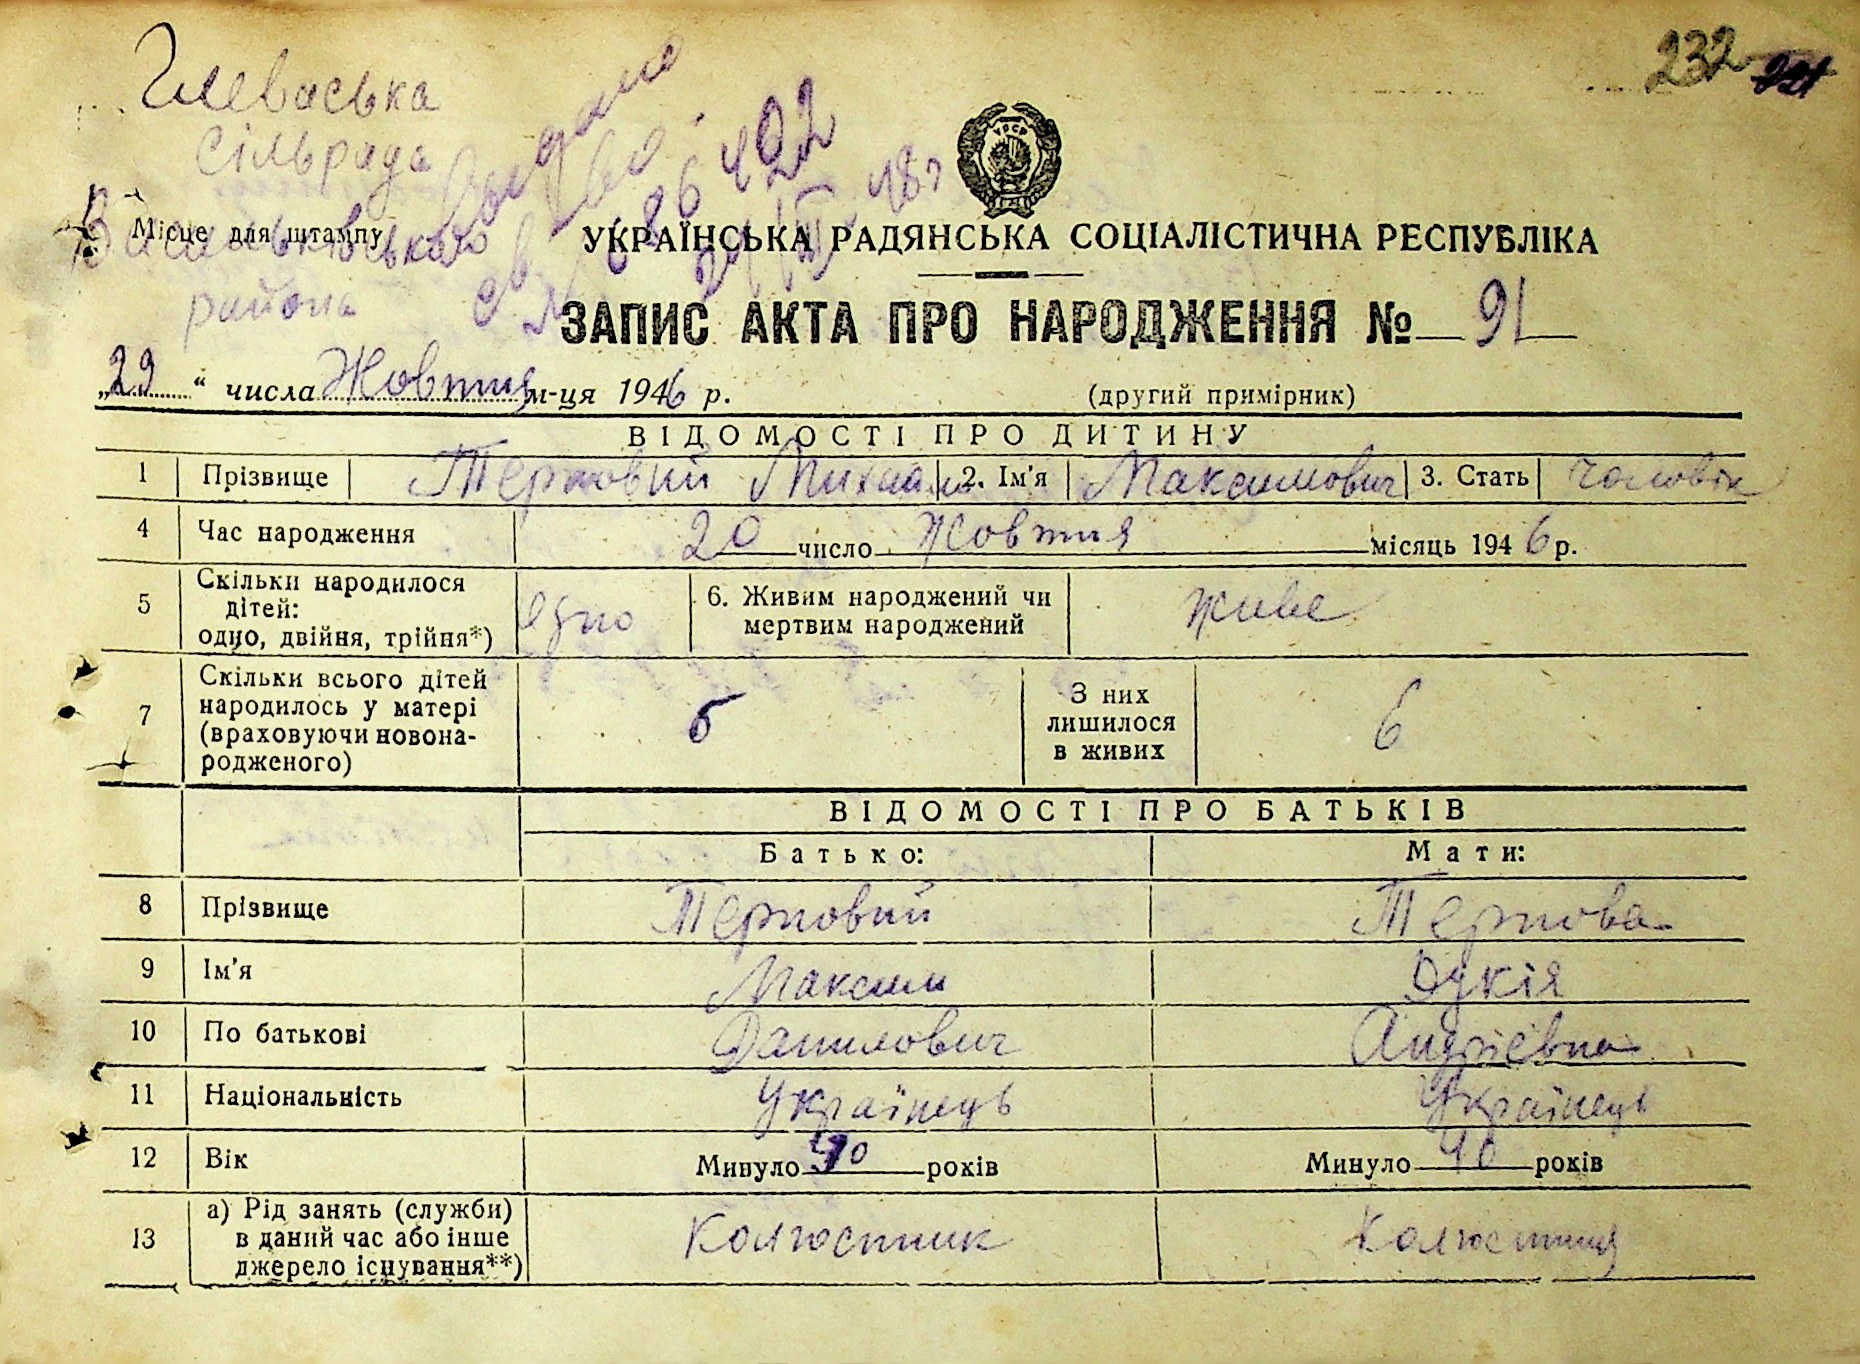 232
Глеваська
сільрада
Васильківського
района
Місце для штампу
УРСР
УКРАЇНСЬКА РАДЯНСЬКА СОЦІАЛІСТИЧНА РЕСПУБЛІКА
ЗАПИС АКТА ПРО НАРОДЖЕННЯ № 91
„29“ числа Жовтня м-ця 1946 р. (другий примірник)
ВІДОМОСТІ ПРО ДИТИНУ
1 Прізвище Терновий Михайло 2. Ім'я Максимович 3. Стать чоловік
4 Час народження 20 число Жовтня місяць 1946 р.
5 Скільки народилося дітей: одно, двійня, трійня*) одно 6. Живим народжений чи мертвим народжений живе
7 Скільки всього дітей народилось у матері (враховуючи новонародженого) 6 З них лишилося в живих 6
ВІДОМОСТІ ПРО БАТЬКІВ
Батько: Мати:
8 Прізвище Терновий Тернова
9 Ім'я Максим Дукія
10 По батькові Данилович Андріевна
11 Національність Українець Українець
12 Вік Минуло 40 років Минуло 40 років
13 а) Рід занять (служби) в даний час або інше джерело існування**) Колгоспник Колгоспниця